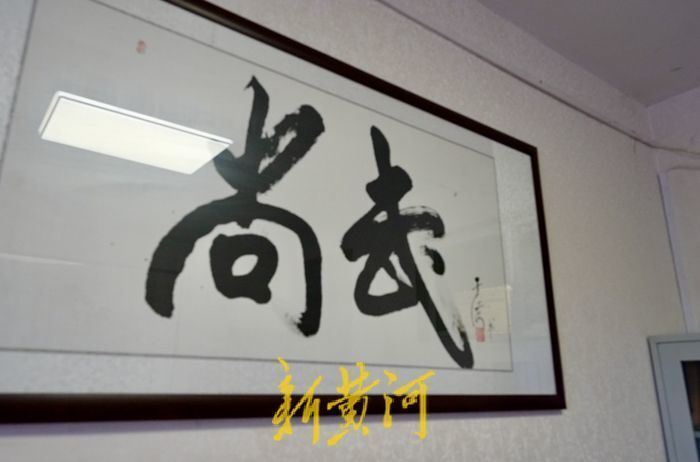 尚武
新黄河